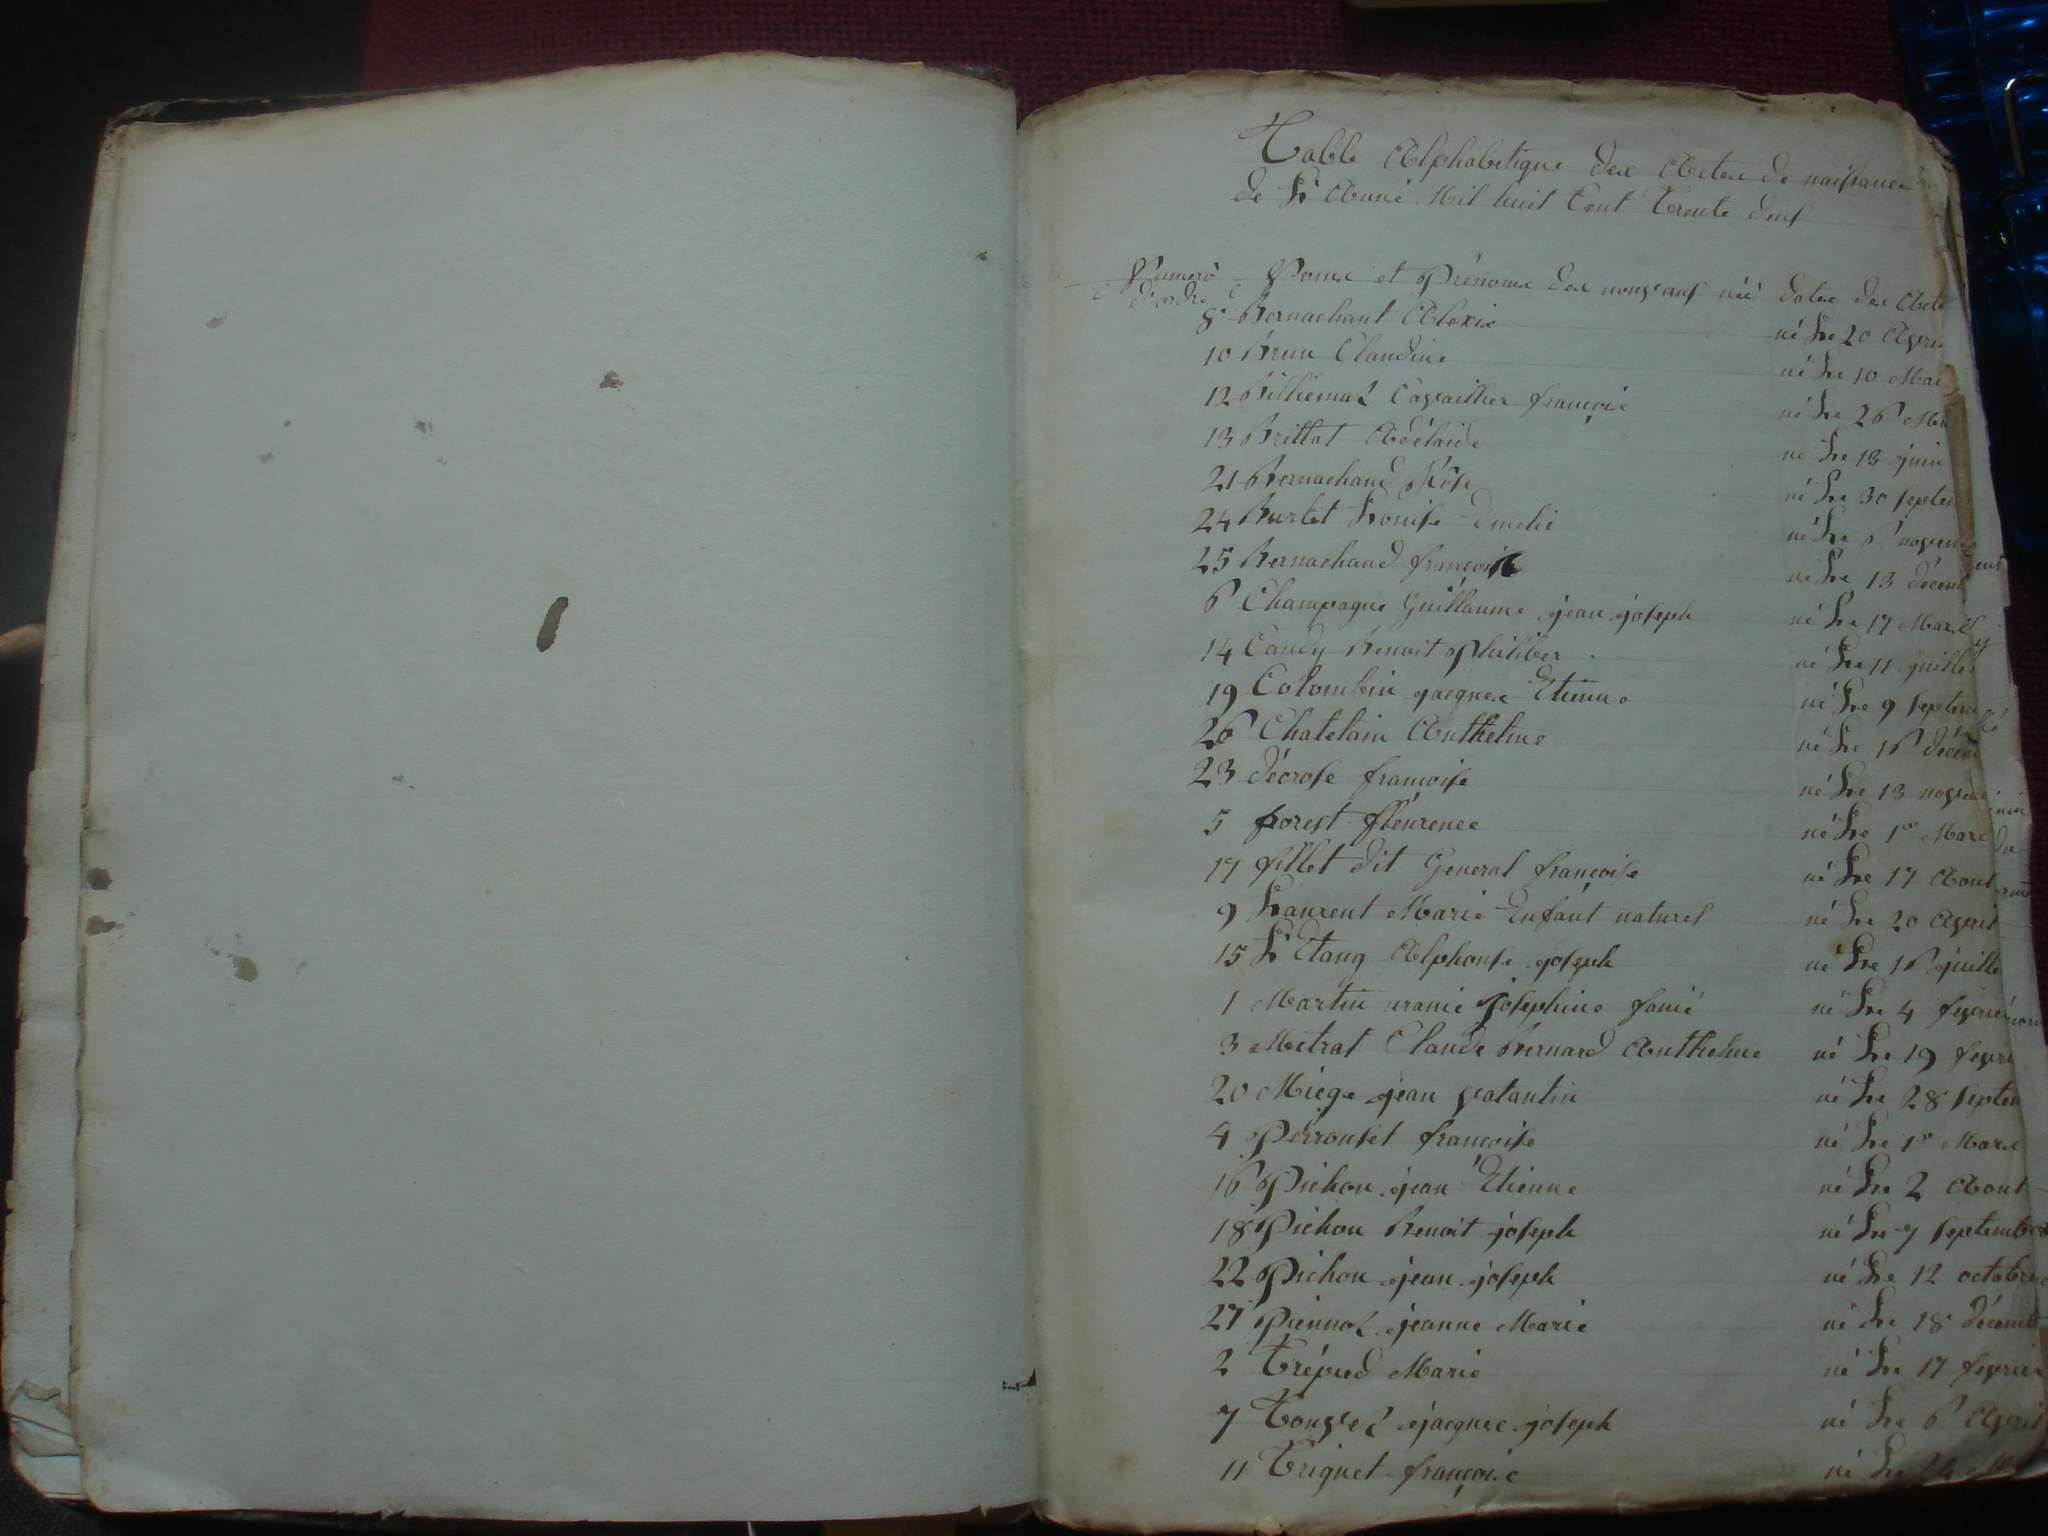 Table Alphabetique des Actes de naissance
de L'Année Mil huit Cent Trente deuf
Numero d'ordre Noms et Prénoms des nouveauf nés dates des Acte
8 Bernachant Alexis né Le 20 Avri
10 Brun Claudine né Le 10 Mai
12 Billiemaz Cavaillier françois né Le 26 Mai
13 Brillat Adélaide né Le 13 juin
21 Bernachand Rose né Le 30 septem
24 Burlet Louise Emelie né Le 6 novem
25 Bernachand françois né Le 13 décem
6 Champagne Guillaume jean joseph né Le 17 Mars
14 Candy Benoit Philiber né Le 11 juillet
19 Colombin jacques Etienne né Le 9 septem
26 Chatelain Anthelme né Le 16 décem
23 décrose françoise né Le 13 novem
5 forest flérence né Le 1er Mars
17 fillet dit General françoise né Le 17 Aout
9 Laurent Marie Enfant naturel né Le 20 Avril
15 L'Etang Alphonse joseph né Le 16 juille
1 Martin uranie josephine fanie né Le 4 fevrie
3 Metrat Claude Bernard Anthelme né Le 19 fevri
20 Miège jean valantin né Le 28 septem
4 Perrouset françoise né Le 1er Mars
16 Pichon jean Etienne né Le 2 Aout
18 Pichon Benoit joseph né Le 7 septembre
22 Pichon jean joseph né Le 12 octobre
27 Piennoz jeanne Marie né Le 18 décemb
2 Trépied Marie né Le 17 fevrier
7 Touvez jacques joseph né Le 6 Avril
11 Triquet françois né Le 24 M